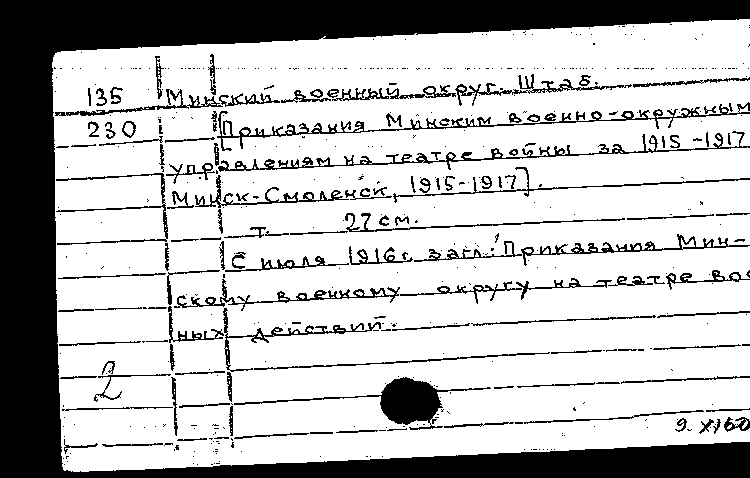 135 Минский военный округ. Штаб.
230 [Приказания Минским военно-окружным
управлениям на театре войны за 1915-1917
Минск-Смоленск, 1915-1917].
т. 27 см.
С июля 1916 г. загл.: Приказания Мин-
скому военному округу на театре вое
ных действий.
2
9. XI 60